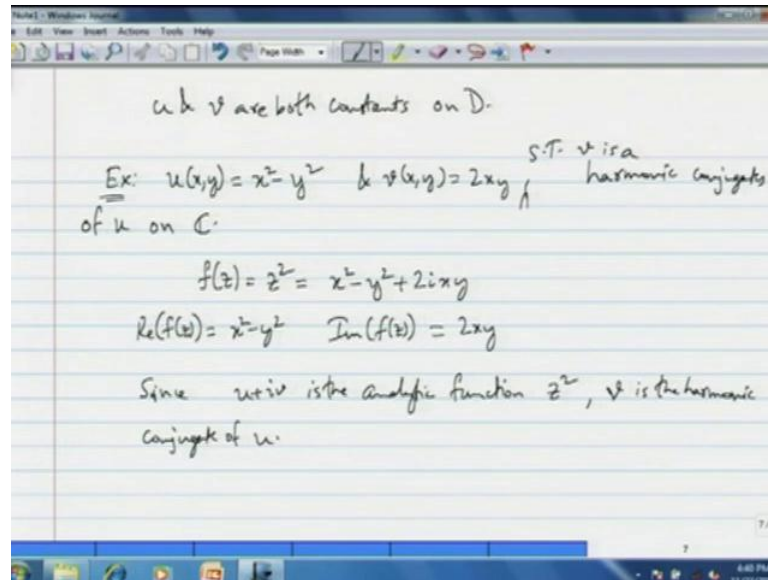 Note1 - Windows Journal
Edit View Insert Actions Tools Help
Page Width
u & v are both constants on D.
Ex: u(x,y) = x² - y² & v(x,y) = 2xy, S.T. v is a harmonic conjugate
of u on ℂ.
f(z) = z² = x² - y² + 2ixy
Re(f(z)) = x² - y² Im(f(z)) = 2xy
Since u+iv is the analytic function z², v is the harmonic
conjugate of u.
7
4:40 PM